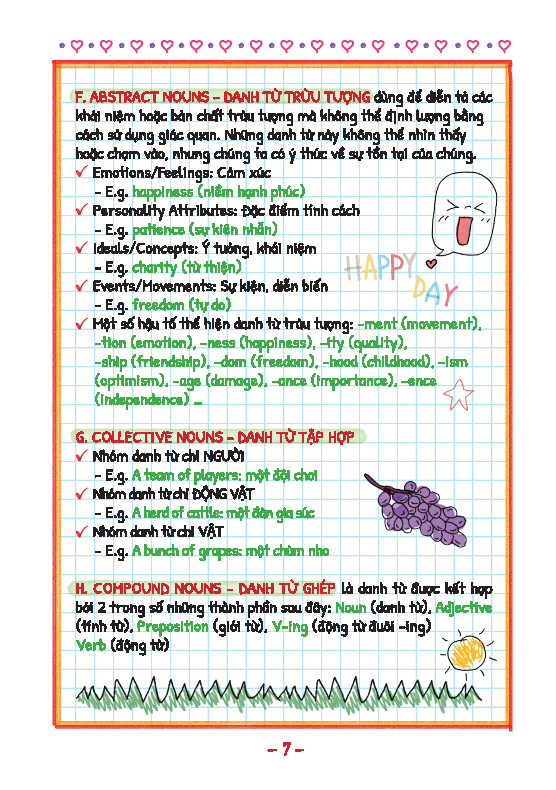 F. ABSTRACT NOUNS – DANH TỪ TRỪU TƯỢNG dùng để diễn tả các
khái niệm hoặc bản chất trừu tượng mà không thể định lượng bằng
cách sử dụng giác quan. Những danh từ này không thể nhìn thấy
hoặc chạm vào, nhưng chúng ta có ý thức về sự tồn tại của chúng.
✓ Emotions/Feelings: Cảm xúc
– E.g. happiness (niềm hạnh phúc)
✓ Personality Attributes: Đặc điểm tính cách
– E.g. patience (sự kiên nhẫn)
✓ Ideals/Concepts: Ý tưởng, khái niệm
– E.g. charity (từ thiện)
HAPPY
DAY
✓ Events/Movements: Sự kiện, diễn biến
– E.g. freedom (tự do)
✓ Một số hậu tố thể hiện danh từ trừu tượng: –ment (movement),
–tion (emotion), –ness (happiness), –ity (quality),
–ship (friendship), –dom (freedom), –hood (childhood), –ism
(optimism), –age (damage), –ance (importance), –ence
(independence) ...
G. COLLECTIVE NOUNS – DANH TỪ TẬP HỢP
✓ Nhóm danh từ chỉ NGƯỜI
– E.g. A team of players: một đội chơi
✓ Nhóm danh từ chỉ ĐỘNG VẬT
– E.g. A herd of cattle: một đàn gia súc
✓ Nhóm danh từ chỉ VẬT
– E.g. A bunch of grapes: một chùm nho
H. COMPOUND NOUNS – DANH TỪ GHÉP là danh từ được kết hợp
bởi 2 trong số những thành phần sau đây: Noun (danh từ), Adjective
(tính từ), Preposition (giới từ), V-ing (động từ đuôi –ing)
Verb (động từ)
– 7 –